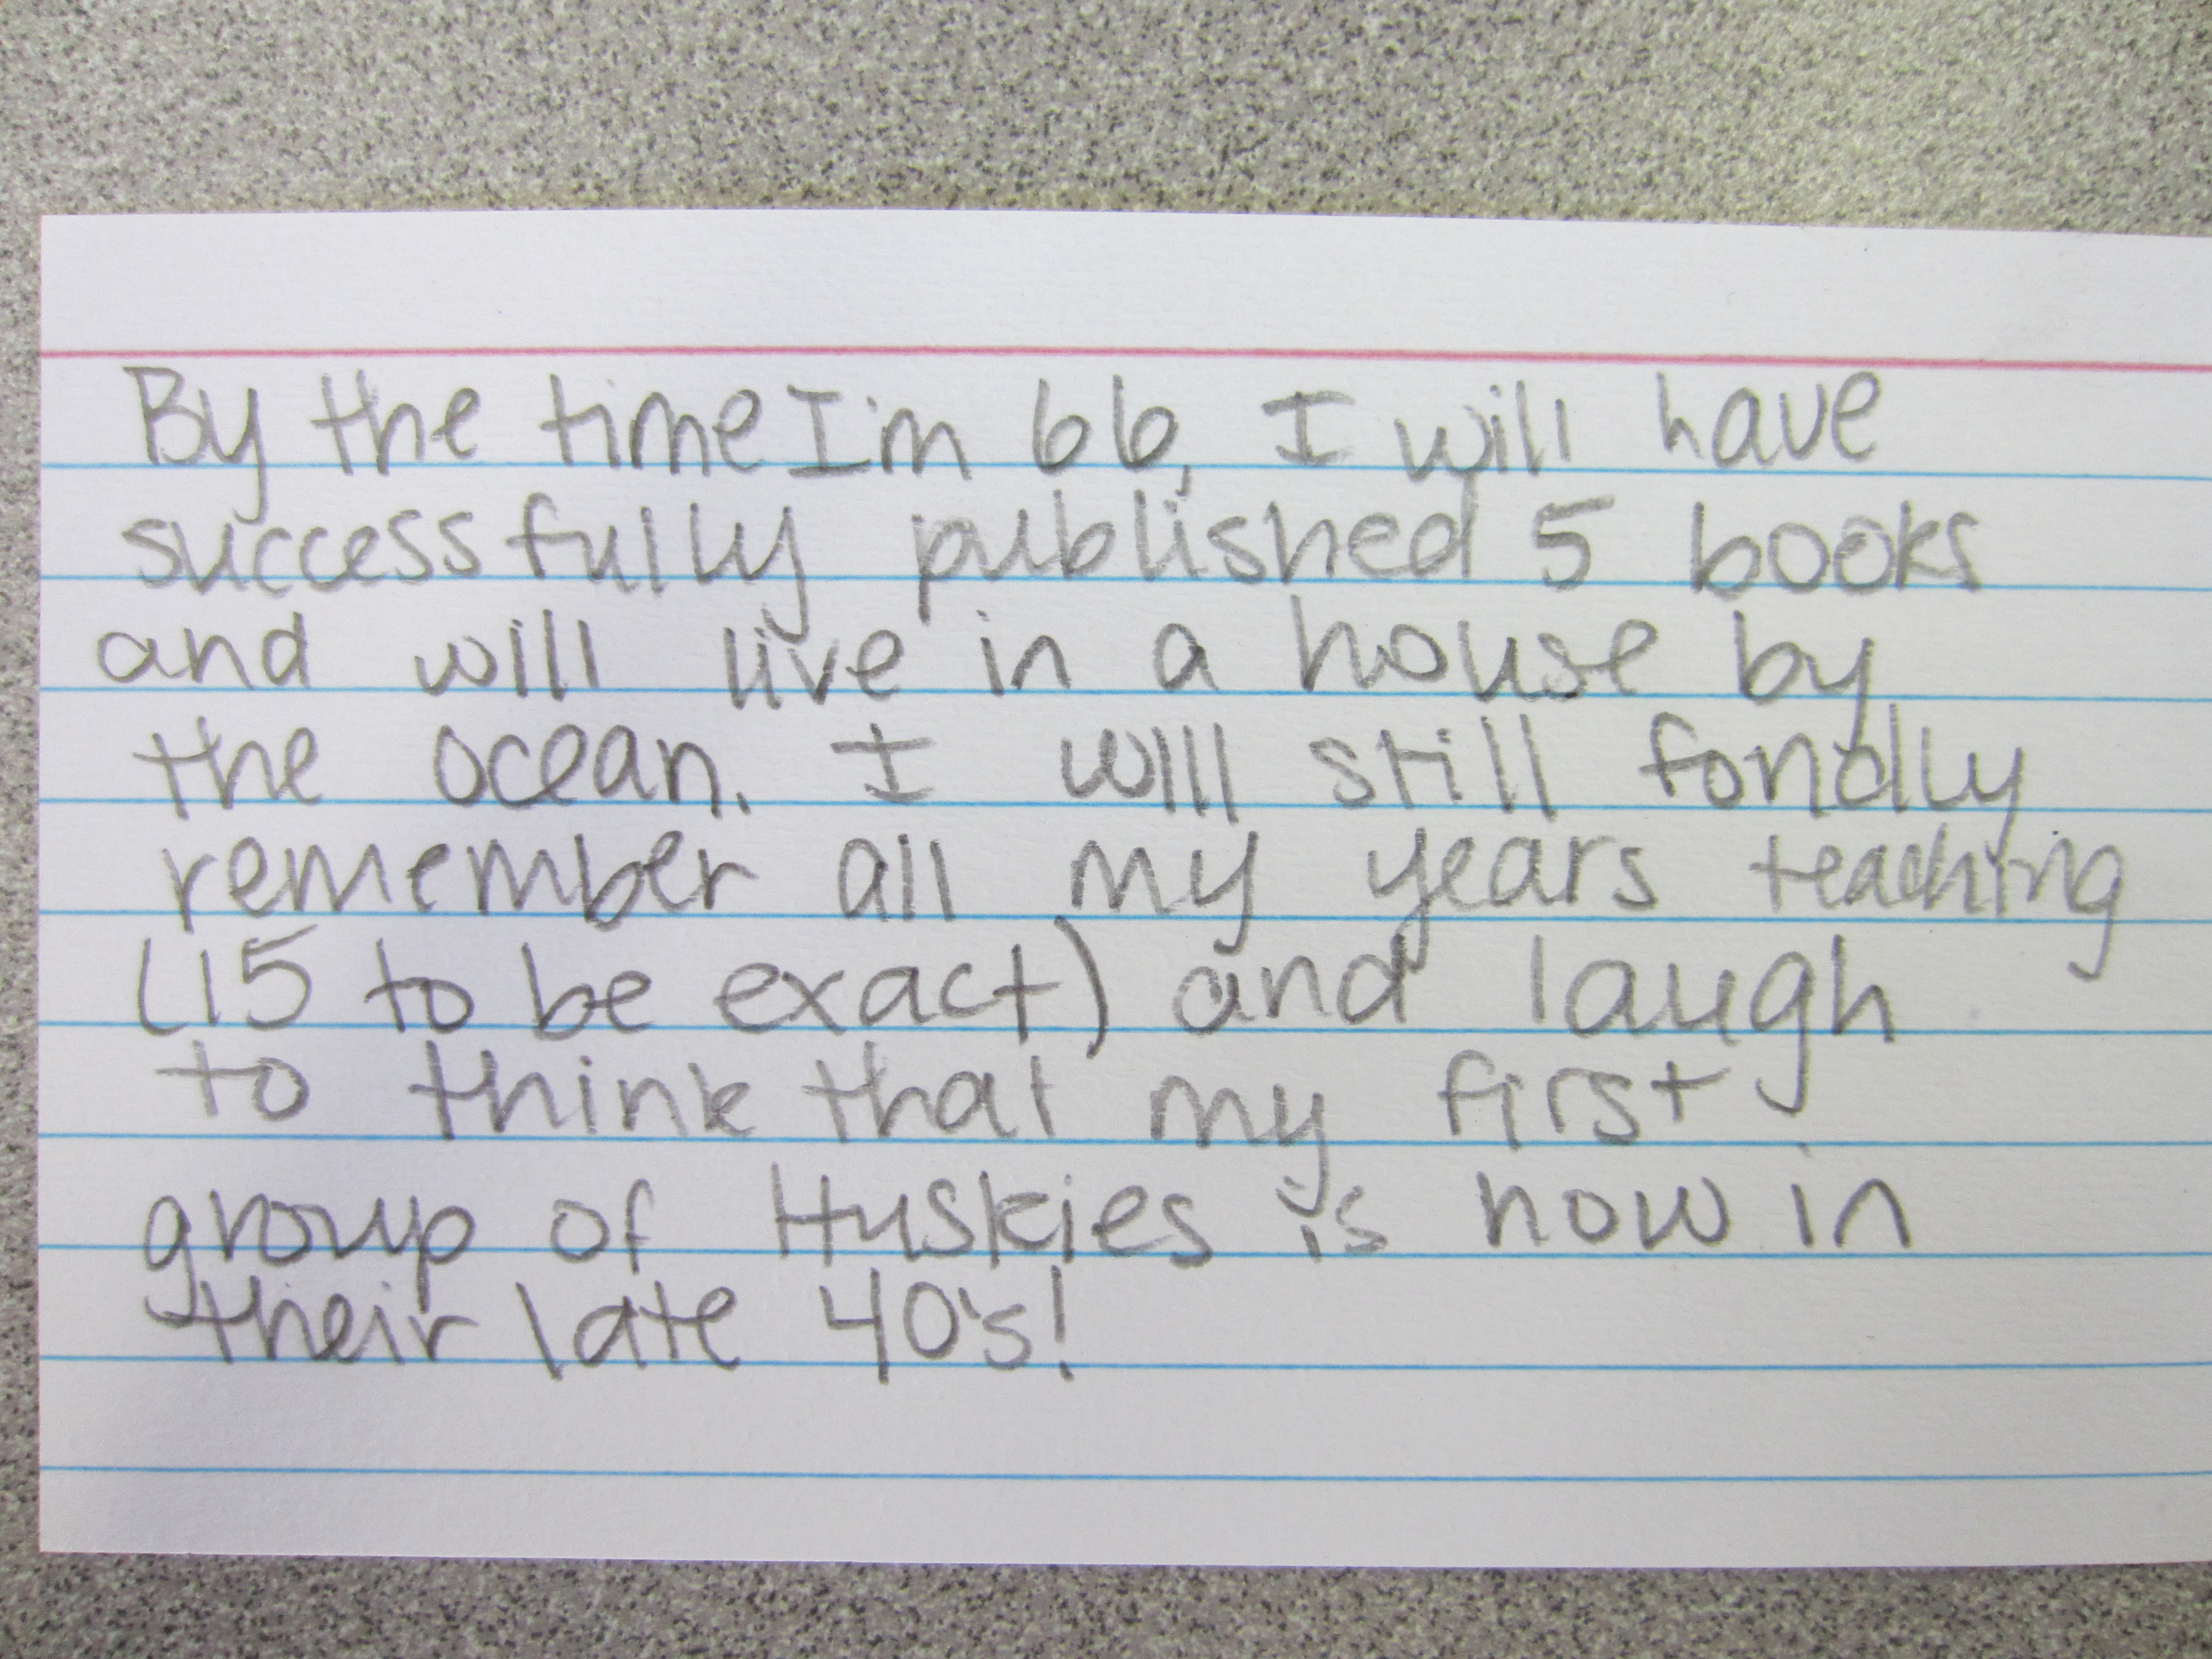 By the time I'm 66, I will have
successfully published 5 books
and will live in a house by
the ocean. I will still fondly
remember all my years teaching
(15 to be exact) and laugh
to think that my first
group of Huskies is now in
their late 40's!